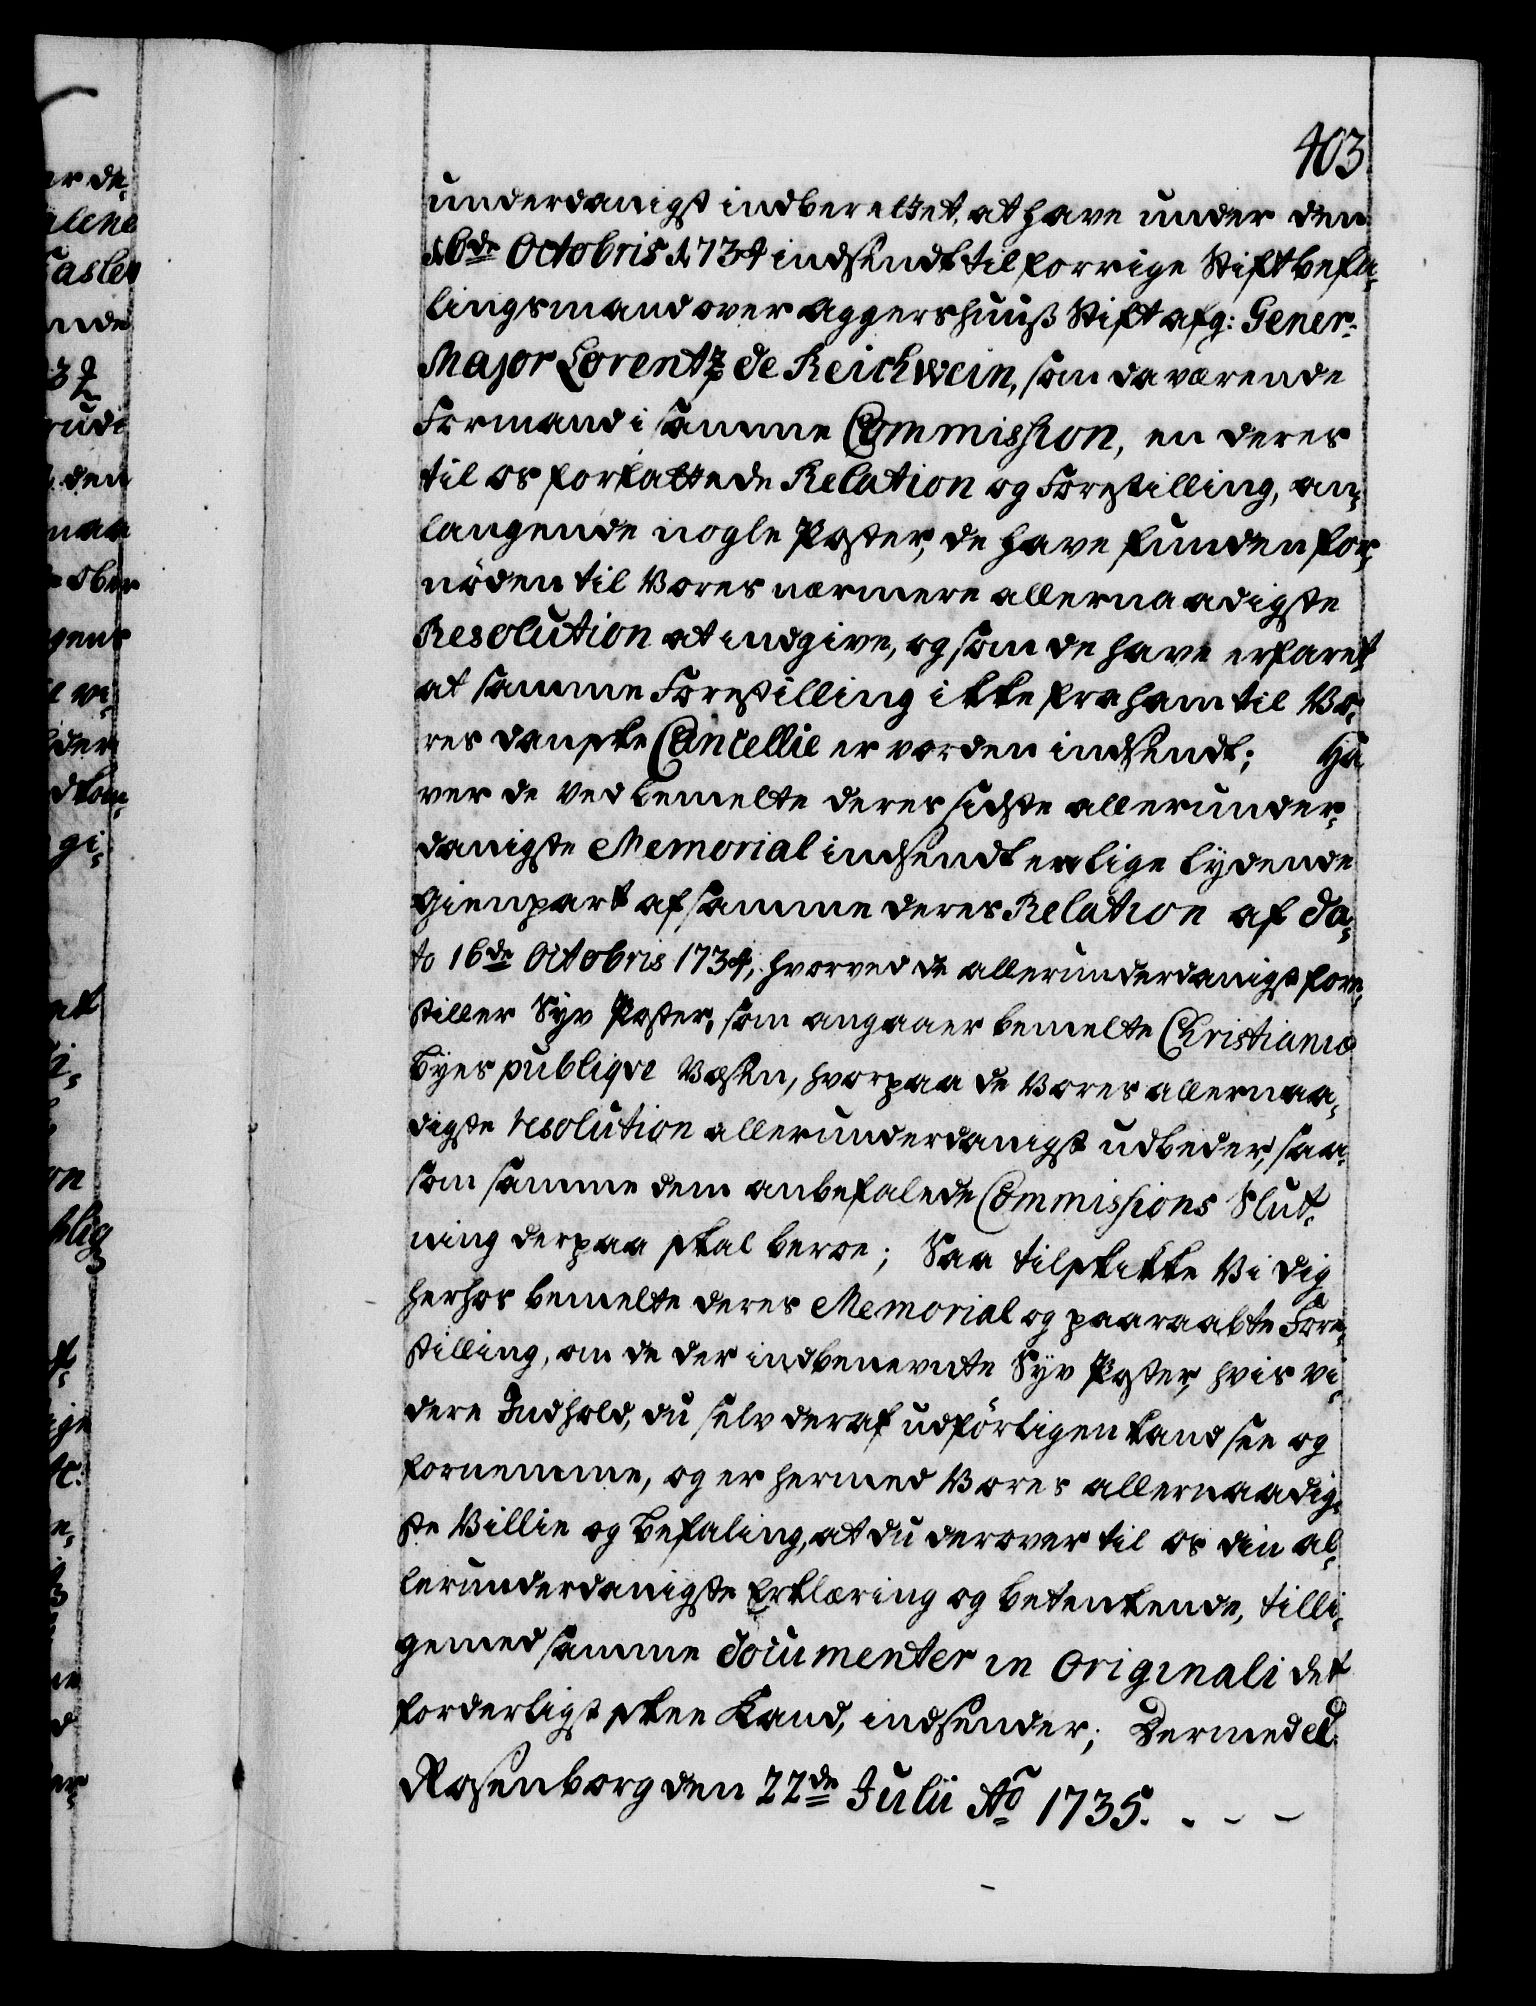 403
underdanigst indberettet, at have under den
16de Octobris 1734 indsendt til forrige Stiftbefa-
lingsmand over Aggershuuß Stift afg: Gener-
Major Lorentz de Reichwein, som da værende
Formand i samme Commission, en deres
til os forfattede Relation og Forestilling, an-
langende nogle Poster, de have funden for-
nøden til Vores nærmere allernaadigste
Resolution at indgive, og som de have erfaret
at samme Forestilling ikke fra ham til Vo-
res danske Cancellie er vorden indsendt; Ha-
ver de ved bemelte deres sidste allerunder-
danigste Memorial indsendt en lige lydende
Gienpart af samme deres Relation af da-
to 16de Octobris 1734, hvorved de allerunderdanigst fore-
stiller Syv Poster, som angaaer bemelte Christiania
Byes publiqve Væsen, hvorpaa de Vores allernaa-
digste resolution allerunderdanigst udbeder, saa-
som samme dem anbefalede Commissions Slut-
ning derpaa skal beroe; Saa tilskikke Vi dig
herhos bemelte deres Memorial og paaraabte Fore-
stilling, om de der indbenevnte Syv Poster, hvis vi-
dere Indhold, du selv deraf udførligen kand see og
fornemme, og er hermed Vores allernaadig-
ste Villie og Befaling, at du derover til os din al-
lerunderdanigste Erklæring og betenkende, tilli-
gemed samme documenter in originali det
forderligst skee kand, indsender; Dermed etc.
Rosenborg den 22de Julii Ao 1735. - - -